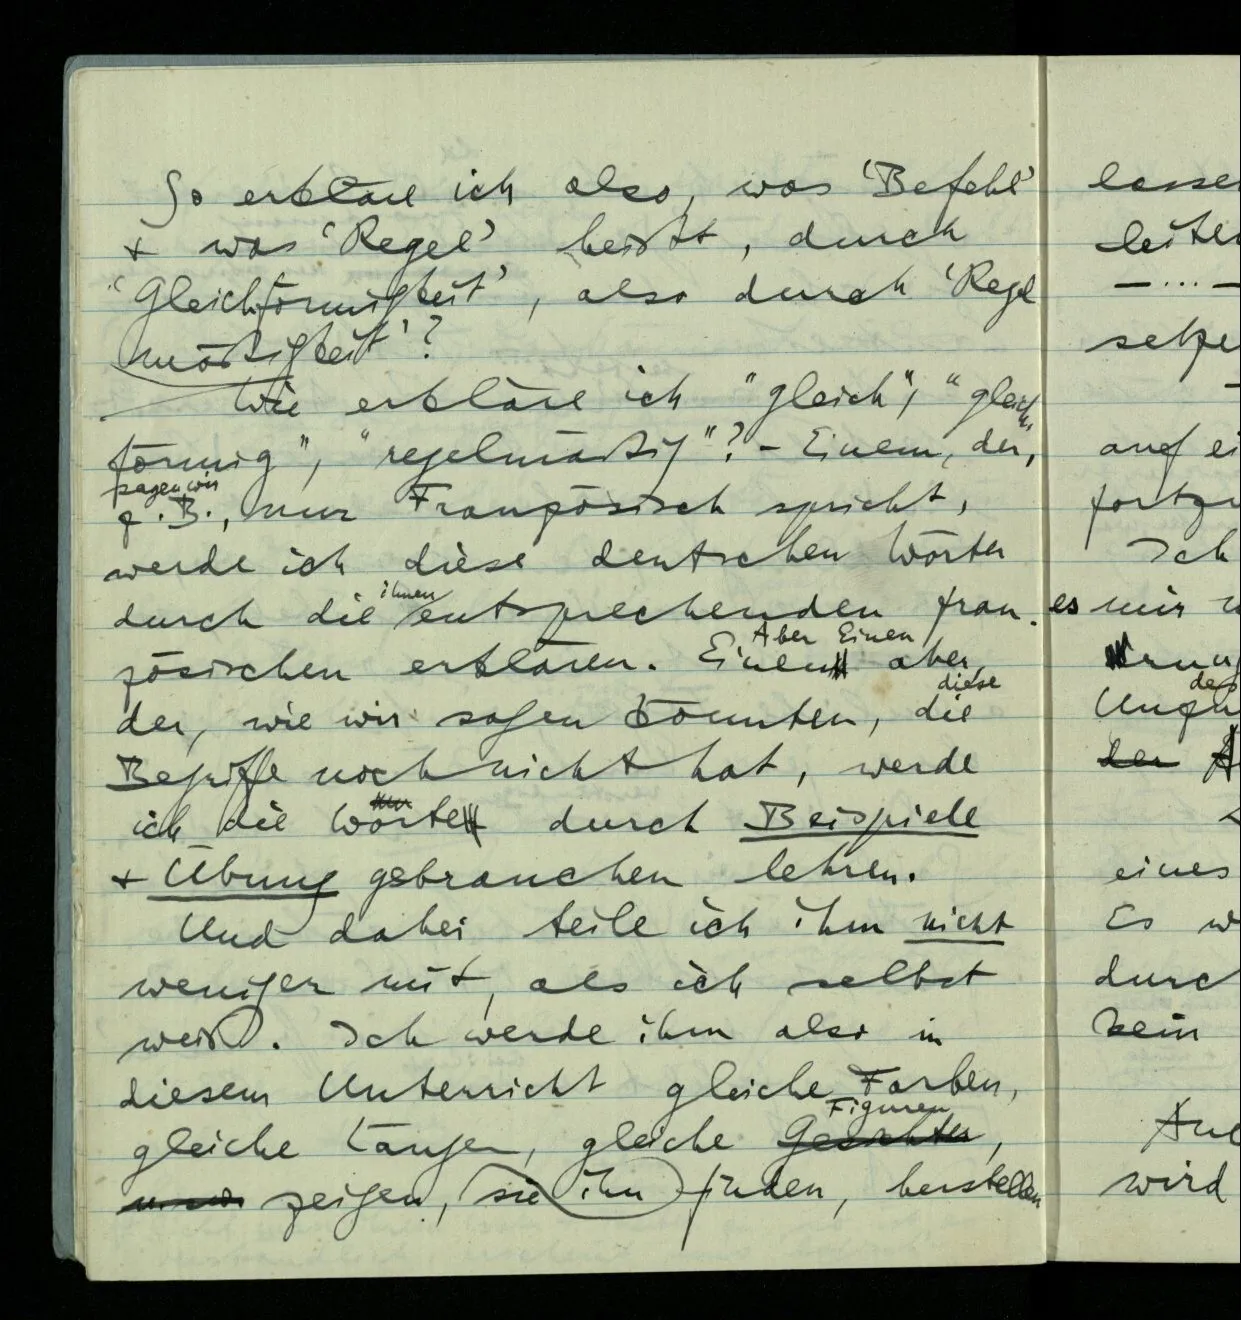 So erkläre ich also, was 'Befehl'
+ was 'Regel' heißt, durch
'Gleichförmigkeit', also durch 'Regel
mäßigkeit'?
Wie erkläre ich "gleich", "gleich-
förmig", "regelmäßig"? – Einem, der,
sagen wir
z.B., nur Französisch spricht,
werde ich diese deutschen Wörter
ihnen
durch die entsprechenden fran-
Aber Einen
zösischen erklären. Einen aber,
diese
der, wie wir sagen könnten, die
Begriffe noch nicht hat, werde
ich die Worte durch Beispiele
+ Übung gebrauchen lehren.
Und dabei teile ich ihm nicht
weniger mit, als ich selbst
weiß. Ich werde ihm also in
diesem Unterricht gleiche Farben,
Figuren
gleiche Längen, gleiche
zeigen, sie ihn finden, herstellen
lasse
leiten
– ... –
setze
auf ei
fortzu
Ich
es mir
des
der
eines
Es w
durc
kein
Auc
wird